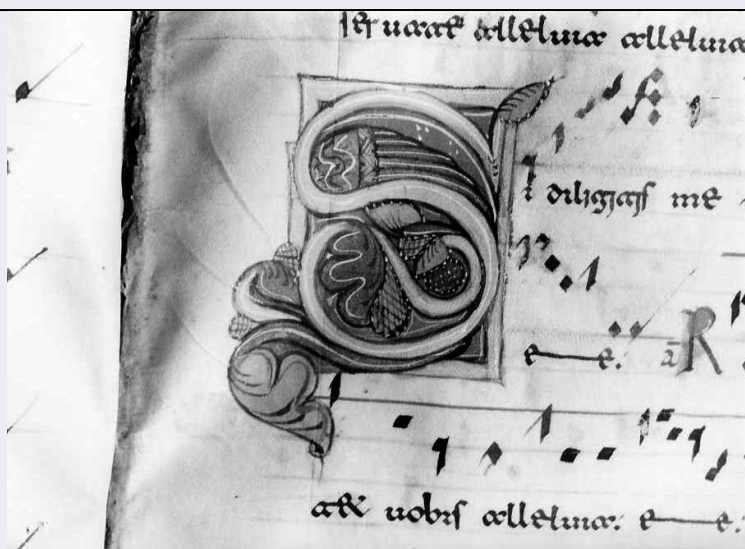 alleluia alleluia
S
i diligitis me
e e. R
uobis alleluia. e e.